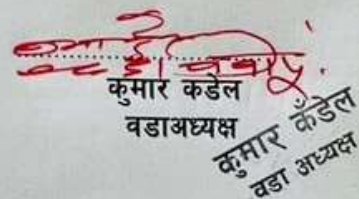 कुमार कडेल
वडाअध्यक्ष
कुमार कँडेल
वडा अध्यक्ष